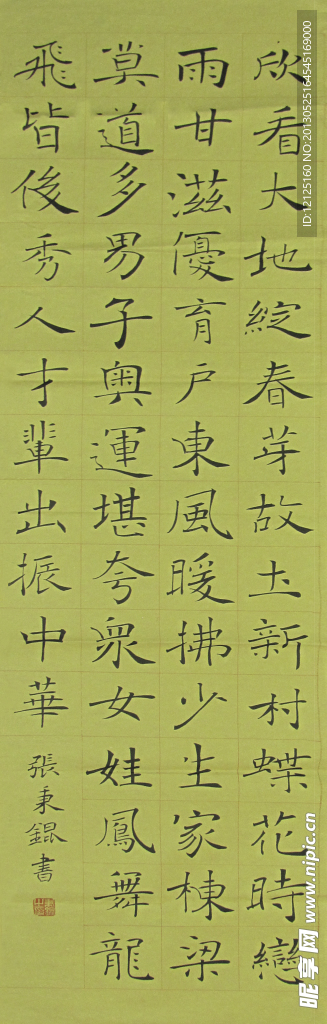 欣看大地綻春芽故土新村蝶花時戀
雨甘滋優育戶東風暖拂少生家棟梁
莫道多男子奧運堪夸衆女娃鳳舞龍
飛皆後秀人才輩出振中華
張秉錕書
昵享网 www.nipic.cn
ID:12125160 NO:20130525164545169000